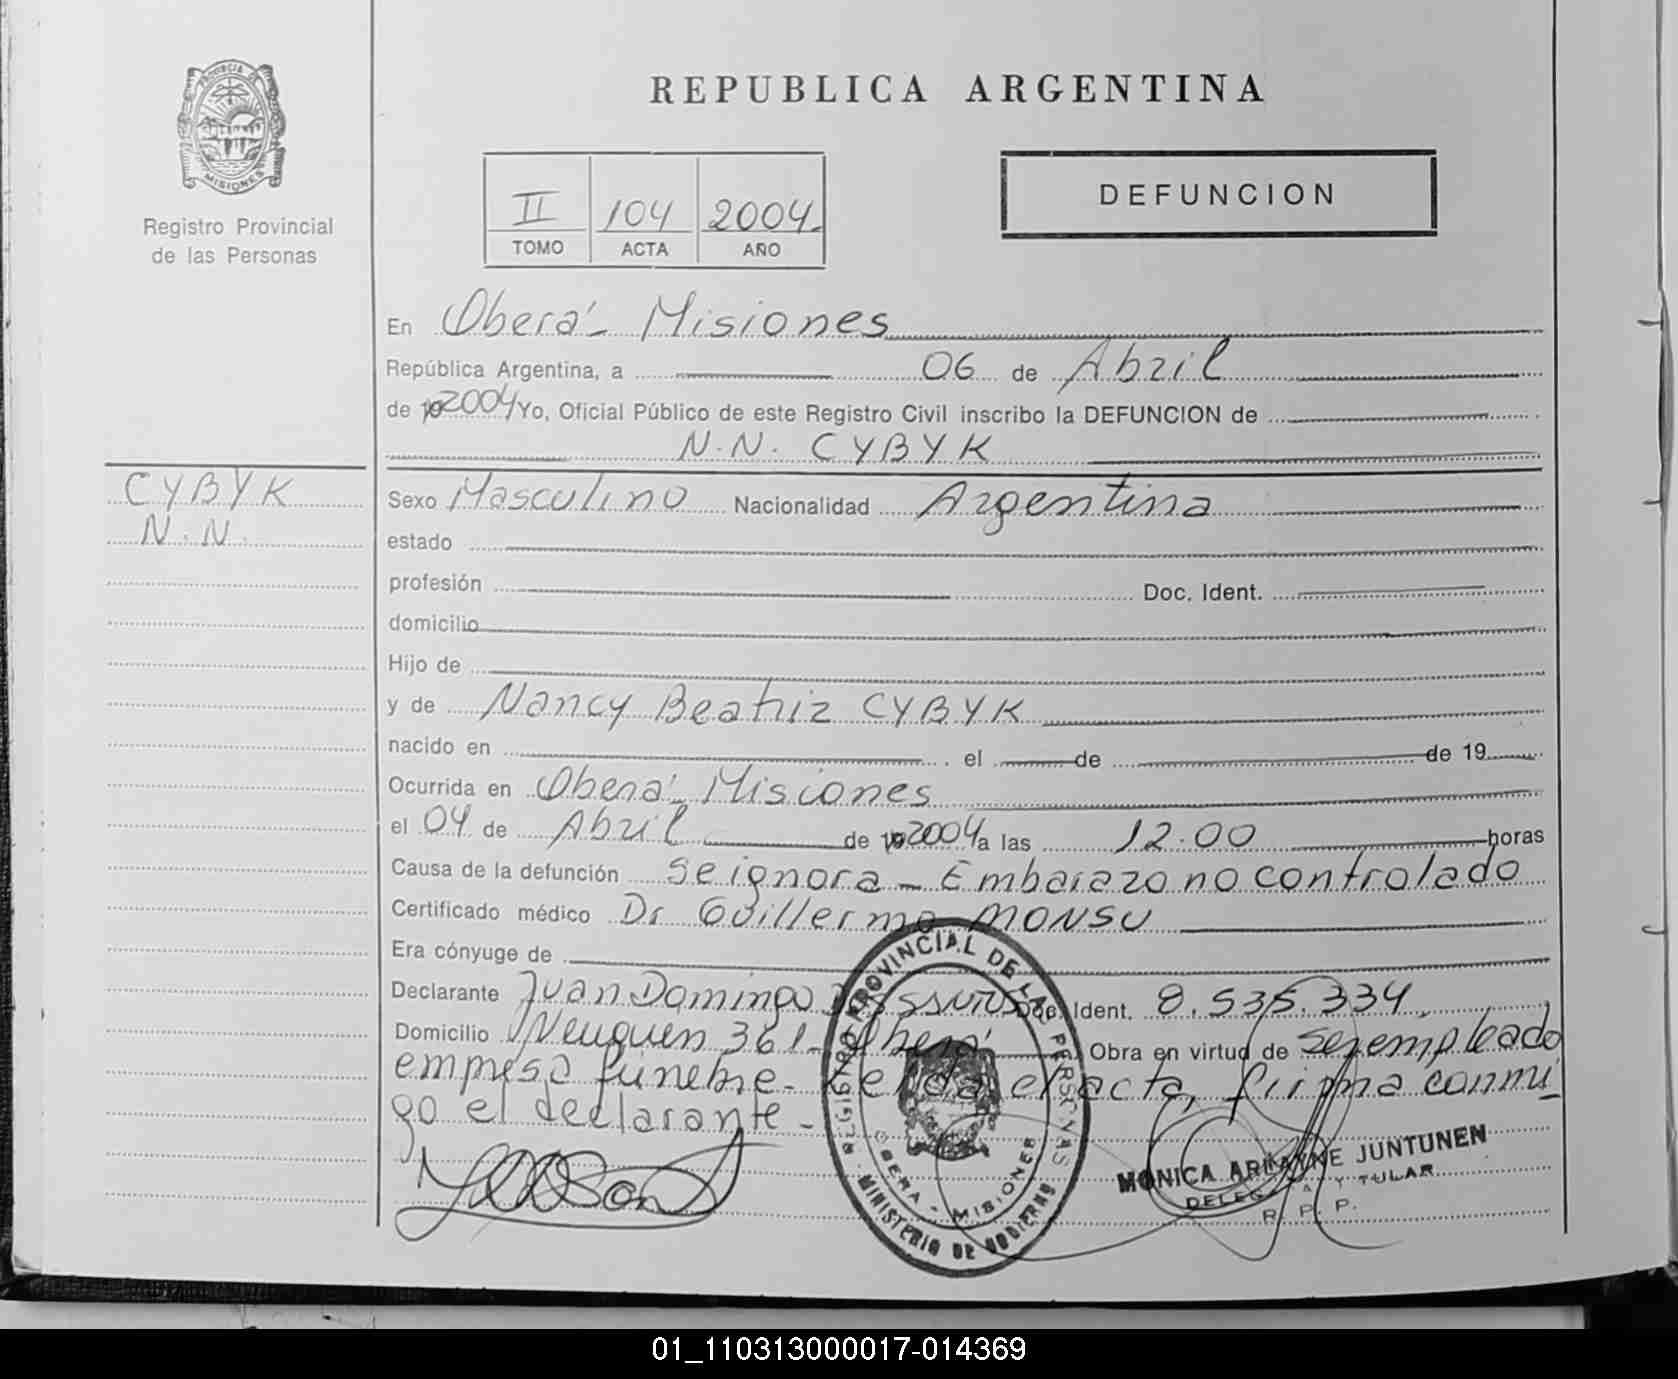 PROVINCIA DE
MISIONES
Registro Provincial
de las Personas
REPUBLICA ARGENTINA
II 104 2004
TOMO ACTA AÑO
DEFUNCION
En Oberá - Misiones
República Argentina, a 06 de Abril
de 19 2004 Yo, Oficial Público de este Registro Civil inscribo la DEFUNCION de
N.N. CYBYK
CYBYK
N.N.
Sexo Masculino Nacionalidad Argentina
estado
profesión Doc. Ident.
domicilio
Hijo de
y de Nancy Beatriz CYBYK
nacido en el de de 19
Ocurrida en Oberá - Misiones
el 04 de Abril de 19 2004 a las 12.00 horas
Causa de la defunción Se ignora - Embarazo no controlado
Certificado médico Dr Guillermo MONSU
Era cónyuge de
Declarante Juan Domingo Doc. Ident. 8.535.334
Domicilio Neuquen 361 - Oberá Obra en virtud de ser empleado
empresa fúnebre - Leída el acta, firma conmi
go el declarante -
REGISTRO PROVINCIAL DE LAS PERSONAS
OBERA - MISIONES
MINISTERIO DE GOBIERNO
MONICA JUNTUNEN
R. P. P.
01_110313000017-014369